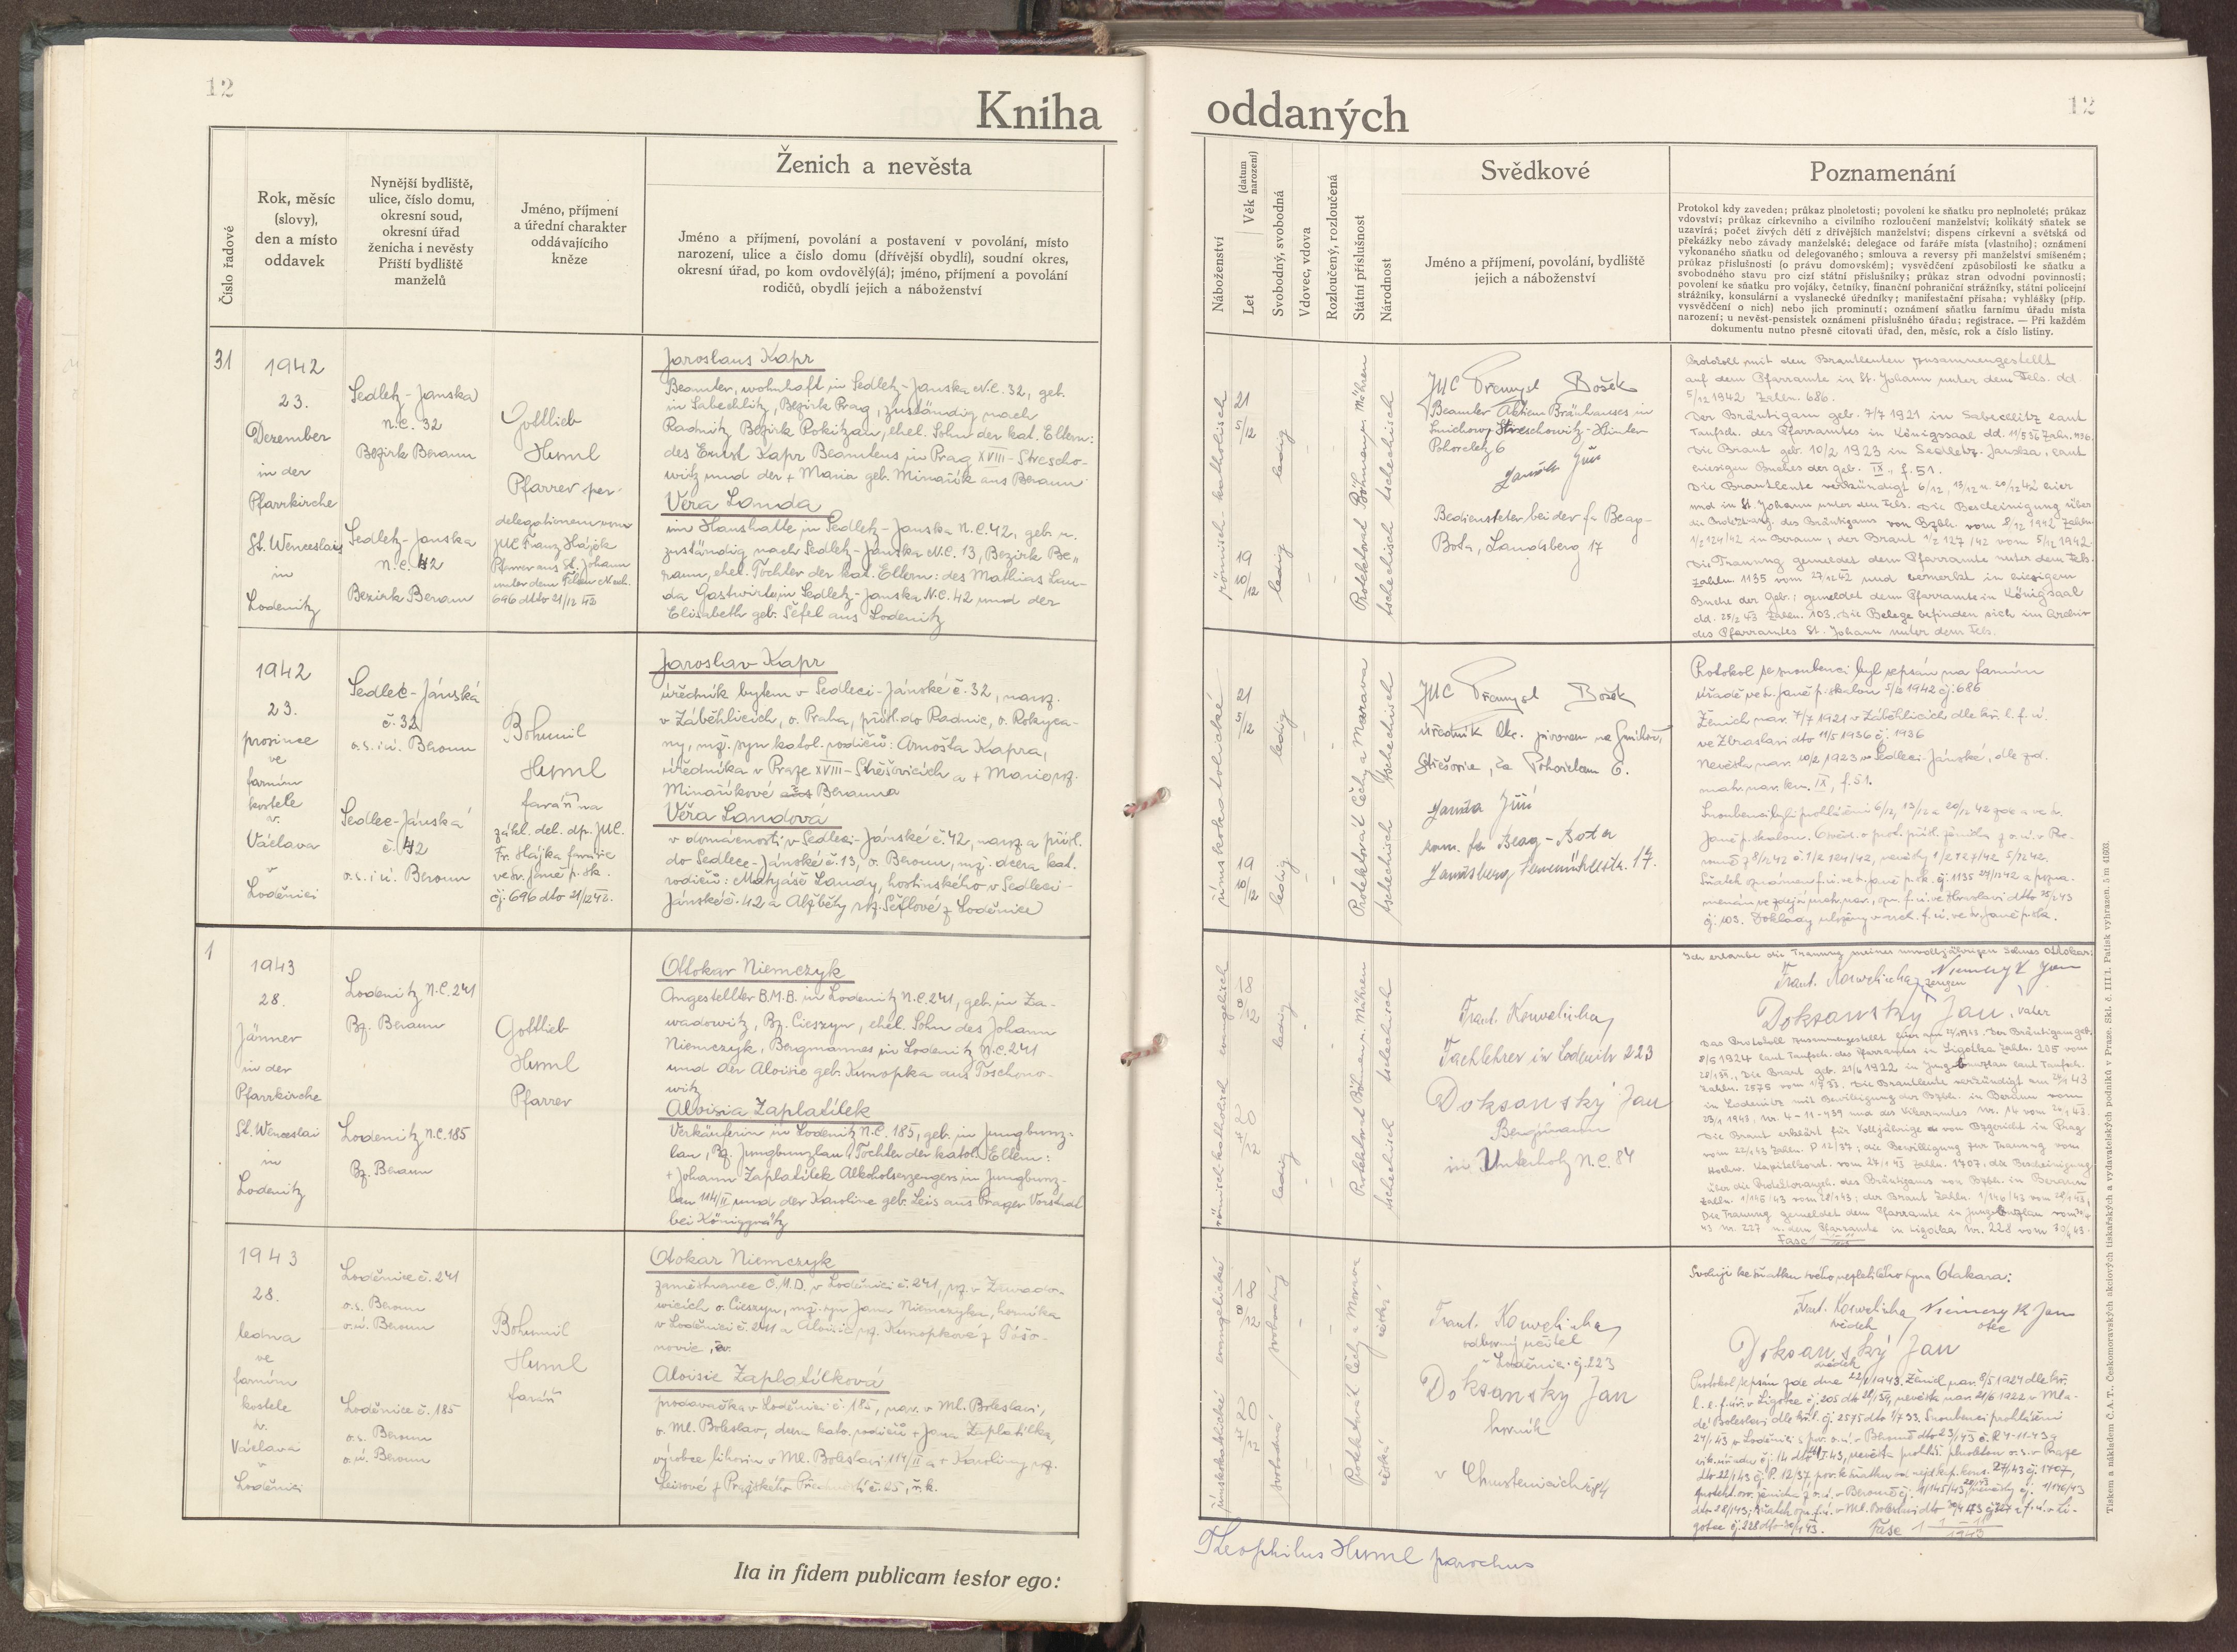 12
Kniha
Číslo řadové
Rok, měsíc
(slovy),
den a místo
oddavek
Nynější bydliště,
ulice, číslo domu,
okresní soud,
okresní úřad
ženicha i nevěsty
Příští bydliště
manželů
Jméno, příjmení
a úřední charakter
oddávajícího
kněze
Ženich a nevěsta
Jméno a příjmení, povolání a postavení v povolání, místo
narození, ulice a číslo domu (dřívější obydlí), soudní okres,
okresní úřad, po kom ovdovělý(á); jméno, příjmení a povolání
rodičů, obydlí jejich a náboženství
31
1942
23.
Dezember
in der
Pfarrkirche
St. Wenceslais
in
Lodenitz
Sedletz-Janska
n.c. 32
Bezirk Beraun
Sedletz-Janska
n.c. 42
Bezirk Beraun
Gottlieb
Huml
Pfarrer per
delegationem vom
JUC Franz Hájek
Pfarrer aus St. Johann
unter dem Felsen
696 dtto 21/12 42
Jaroslaus Kapr
Beamter, wohnhaft in Sedletz-Janska N.C. 32, geb.
in Sabechlitz, Bezirk Prag, zuständig nach
Radnitz Bezirk Rokitzan, ehel. Sohn der kat. Eltern:
des Ernst Kapr Beamtens in Prag XVIII-Strescho-
witz und der + Maria geb. Minařik aus Beraun
Vera Landa
im Haushalte, in Sedletz-Janska N.C. 42, geb. u.
zuständig nach Sedletz-Janska N.C. 13, Bezirk Be-
raun, ehel. Tochter der kat. Eltern: des Mathias Lan-
da Gastwirtes in Sedletz-Janska N.C. 42 und der
Elisabeth geb. Šefel aus Lodenitz
1942
23.
prosince
ve
farním
kostele
sv.
Václava
v
Loděnici
Sedlec-Jánská
č. 32
o.s. i ú. Beroun
Sedlec-Jánská
č. 42
o.s. i ú. Beroun
Bohumil
Huml
farář na
zákl. del. dp. JUC.
Fr. Hájka faráře
ve sv. Janě p. sk.
čj. 696 dto 21/12 42.
Jaroslav Kapr
úředník bytem v Sedleci-Jánské č. 32, naroz.
v Záběhlicích, o. Praha, přísl. do Radnic, o. Rokyca-
ny, mž. syn katol. rodičů: Arnošta Kapra,
úředníka v Praze XVIII-Střešovicích a + Marie roz.
Minaříkové Berouna
Věra Landová
v domácnosti v Sedleci-Jánské č. 42, naroz. a přísl.
do Sedlece-Jánské č. 13, o. Beroun, mž. dcera kat.
rodičů: Matyáše Landy, hostinského v Sedleci-
Jánské č. 42 a Alžběty roz. Šeflové z Loděnice
1
1943
28.
Jänner
in der
Pfarrkirche
St. Wenceslai
in
Lodenitz
Lodenitz N.C. 241
Bz. Beraun
Lodenitz N.C. 185
Bz. Beraun
Gottlieb
Huml
Pfarrer
Ottokar Niemczyk
Angestellter B.M.B. in Lodenitz N.C. 241, geb. in Za-
wadowitz, Bz. Cieszyn, ehel. Sohn des Johann
Niemczyk, Bergmannes in Lodenitz N.C. 241
und der Aloisie geb. Kunopka aus Toschono-
witz
Aloisia Zaplatílek
Verkäuferin in Lodenitz N.C. 185, geb. in Jungbunz-
lau, Bz. Jungbunzlau, Tochter der katol. Eltern:
+ Johann Zaplatílek Alkoholserzeugers in Jungbunz-
lau 114/II und der Karoline geb. Leis aus Prager Vorstadt
bei Königgrätz
1943
28.
ledna
ve
farním
kostele
sv.
Václava
v
Loděnici
Loděnice č. 241
o.s. Beroun
o.ú. Beroun
Loděnice č. 185
o.s. Beroun
o.ú. Beroun
Bohumil
Huml
farář
Otokar Niemczyk
zaměstnanec Č.M.D. v Loděnici č. 241, roz. v Zawado-
wicích o. Cieszyn, mž. syn Jana Niemczyka, horníka
v Loděnici č. 241 a Aloisie roz. Kunopkové z Tošo-
novic, ev.
Aloisie Zaplatílková
prodavačka v Loděnici č. 185, nar. v Ml. Boleslavi,
o. Ml. Boleslav, dcera kato. rodičů + Jana Zaplatílka,
výrobce lihovin v Ml. Boleslavi 114/II a + Karoliny roz.
Leisové z Pražského Předměstí č. 65, ř.k.
Ita in fidem publicam testor ego:
oddaných
12
Náboženství
Let
Věk (datum narození)
Svobodný, svobodná
Vdovec, vdova
Rozloučený, rozloučená
Státní příslušnost
Národnost
Svědkové
Jméno a příjmení, povolání, bydliště
jejich a náboženství
Poznamenání
Protokol kdy zaveden; průkaz plnoletosti; povolení ke sňatku pro neplnoleté; průkaz
vdovství; průkaz církevního a civilního rozloučení manželství; kolikátý sňatek se
uzavírá; počet živých dětí z dřívějších manželství; dispens církevní a světská od
překážky nebo závady manželské; delegace od faráře místa (vlastního); oznámení
vykonaného sňatku od delegovaného; smlouva a reversy při manželství smíšeném;
průkaz příslušnosti (o právu domovském); vysvědčení způsobilosti ke sňatku a
svobodného stavu pro cizí státní příslušníky; průkaz stran odvodní povinnosti;
povolení ke sňatku pro vojáky, četníky, finanční pohraniční strážníky, státní policejní
strážníky, konsulární a vyslanecké úředníky; manifestační přísaha; vyhlášky (příp.
vysvědčení o nich) nebo jich prominutí; oznámení sňatku farnímu úřadu místa
narození; u nevěst-pensistek oznámení příslušného úřadu; registrace. — Při každém
dokumentu nutno přesně citovati úřad, den, měsíc, rok a číslo listiny.
römisch-katholisch
21
5/12
19
10/12
ledig
ledig
Protektorat Böhmen u. Mähren
tschechisch
tschechisch
JUC Přemysl Bošek
Beamter Aktien Bräuhauses in
Smichow, Streschowitz-Hinter
Pohoreletz 6
Janúch Jiří
Bediensteter bei der fa Beag-
Bota, Landsberg 17
Protokoll mit den Brautleuten zusammengestellt
auf dem Pfarramte in St. Johann unter dem Fels. dd.
5/12 1942 Zahln. 686.
Der Bräutigam geb. 7/7 1921 in Sabechlitz laut
Taufsch. des Pfarramtes in Königssaal dd. 11/5 36 Zahn. 1936.
Die Braut geb. 10/2 1923 in Sedletz-Janska, laut
hiesigen Buches der geb. IX., f. 51.
Die Brautleute verkündigt 6/12, 13/12 u. 20/12 42 hier
und in St. Johann unter dem Fels. Die Bescheinigung über
die Protektorang. des Bräutigams von Bzbh. vom 8/12 1942 Zahln.
1/2 124/42 in Beraun, der Braut 1/2 127/42 vom 5/12 1942.
Die Trauung gemeldet dem Pfarramte unter dem Fels.
Zahln. 1135 vom 27/12 42 und vermerkt in hiesigem
Buche der Geb.; gemeldet dem Pfarramte in Königsaal
dd. 25/2 43 Zahln. 103. Die Belege befinden sich im Archiv
des Pfarramtes St. Johann unter dem Fels.
římskokatolické
21
5/12
19
10/12
ledig
ledig
Protektorát Čechy a Morava
tschechisch
tschechisch
JUC Přemysl Bošek
úředník Akc. pivovaru na Smíchově,
Střešovice, Za Pohořelcem 6.
Januša Jiří
zam. fa Beag-Bota
Landsberg 17.
Protokol se snoubenci byl sepsán na farním
úřadě ve sv. Janě p. skalou 5/12 1942 čj. 686
Ženich nar. 7/7 1921 v Záběhlicích dle kř. l. f. ú.
ve Zbraslavi dto 11/5 1936 čj. 1936
Nevěsta nar. 10/2 1923 v Sedleci-Jánské, dle zd.
matr. nar. kn. IX, f. 51.
Snoubenci byli prohlášeni 6/12, 13/12 a 20/12 42 zde a ve sv.
Janě p. skalou. Osvěd. o prot. přísl. ženicha z o. ú. v Be-
rouně z 8/12 42 č. 1/2 124/42, nevěsty 1/2 127/42 5/12 42.
Sňatek oznámen f. ú. ve sv. Janě p. sk. čj. 1135 27/12 42 a pozna-
menán ve zdejší matr. nar., ozn. f. ú. ve Zbraslavi dtto 25/2 43
čj. 103. Doklady uloženy v arch. f. ú. ve sv. Janě p. ska.
evangelisch
römisch-katholisch
18
8/12
20
ledig
ledig
Protektorat Böhmen u. Mähren
tschechisch
tschechisch
Frant. Kouwelicha
Fachlehrer in Lodenitz 223
Doksanský Jan
Bergmann
in Unterholz N.C. 84
Ich erlaube die Trauung meines unvolljährigen Sohnes Ottokar:
Frant. Kouwelicha, Niemczyk Jan
zeugen
Doksanský Jan, vater
Das Protokoll zusammengestellt hier am 22/1 1943. Der Bräutigam geb.
8/5 1924 laut Taufsch. des Pfarramtes in Ligotka Zahln. 205 vom
28/1 39, Die Braut geb. 21/6 1922 in Jungbunzlau laut Taufsch.
Zahln. 2575 vom 1/7 33. Die Brautleute verkündigt am 24/1 43
in Lodenitz mit Bewilligung der Bzbh. in Beraun vom
23/1 1943, Nr. 4-11-439 und des Vikaramtes Nr. 14 vom 24/1 43.
Die Braut erklärt für Volljährige von Bzgericht in Prag
vom 22/1 43 Zahln. P 12/37; die Bewilligung zur Trauung vom
Hochw. Kapitelkonst. vom 27/1 43 Zahln. 1707, die Bescheinigung
über die Protektorangeh. des Bräutigams von Bzbh. in Beraun
Zahln. 1/145/43 vom 28/1 43; der Braut Zahln. 1/146/43 von 28/1 43;
Die Trauung gemeldet dem Pfarramte in Jungbunzlau vom
43 Nr. 227 u. dem Pfarramte in Ligotka Nr. 228 vom 30/1 43.
Fasc 1
evangelické
římskokatolické
18
8/12
20
svobodný
svobodná
Protektorát Čechy a Morava
české
česká
Frant. Kouwelicha
odborný učitel
v Loděnici čj. 223
Doksansky Jan
horník
v Chrustenicích č. 84
Svoluji ke sňatku svého nezletilého syna Otakara:
Frant. Kouwelicha, Niemczyk Jan
svědek otec
Doksanský Jan
svědek
Protokol sepsán zde dne 22/1 1943. Ženich nar. 8/5 1924 dle kř.
l. e. f. úř. v Ligotce čj. 205 dto 28/1 39, nevěsta nar. 21/6 1922 v Mla-
dé Boleslavi dle kř. l. čj. 2575 dto 1/7 33. Snoubenci prohlášeni
24/1 43 v Loděnici s pov. o. ú. v Berouně dto 23/1 43 č. 4-11-439
vik. úřadu čj. 14 dto 24/I. 43, nevěsta prohláš. plnoletou o. s. v Praze
dto 22/1 43 čj. P. 12/37, pov. k sňatku od nejd. kap. kons. 27/1 43 čj. 1707,
protekt. osv. ženicha z o. ú. v Berouně čj. 1/145/43, nevěsty čj. 1/146/43
dto 28/1 43; sňatek ozn. f. ú. v Ml. Boleslavi dto 30/1 43 čj. 227 a f. ú. v Li-
gotce čj. 228 dto 30/1 43. Fasc 1 1-11 1943
Theophilus Huml parochus
Tiskem a nákladem Č. A. T., Českomoravských akciových tiskařských a vydavatelských podniků v Praze. Skl. č. III 1. Patisk vyhrazen. 5 m 41603.